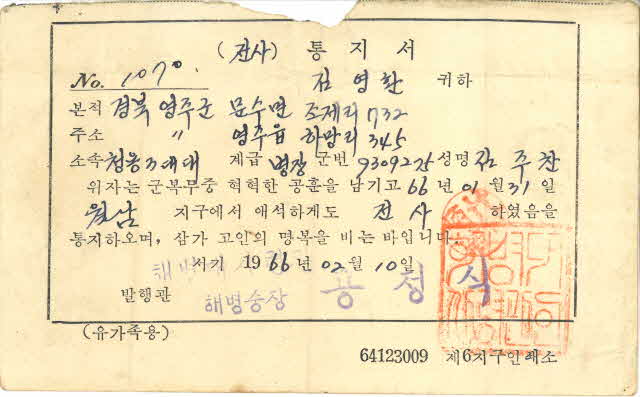 (전사) 통지서
No. 1070. 김영환 귀하
본적 경북 영주군 문수면 조제리 1732
주소 〃 영주읍 하망리 345
소속 청용3대대 계급 병장 군번 9309225 성명 김주찬
위자는 군복무중 혁혁한 공훈을 남기고 66년 01월 31일
월남 지구에서 애석하게도 전사 하였음을
통지하오며, 삼가 고인의 명복을 비는 바입니다.
서기 1966년 02월 10일
발행관 해병중장 공정식
(유가족용)
64123009 제6지구인쇄소